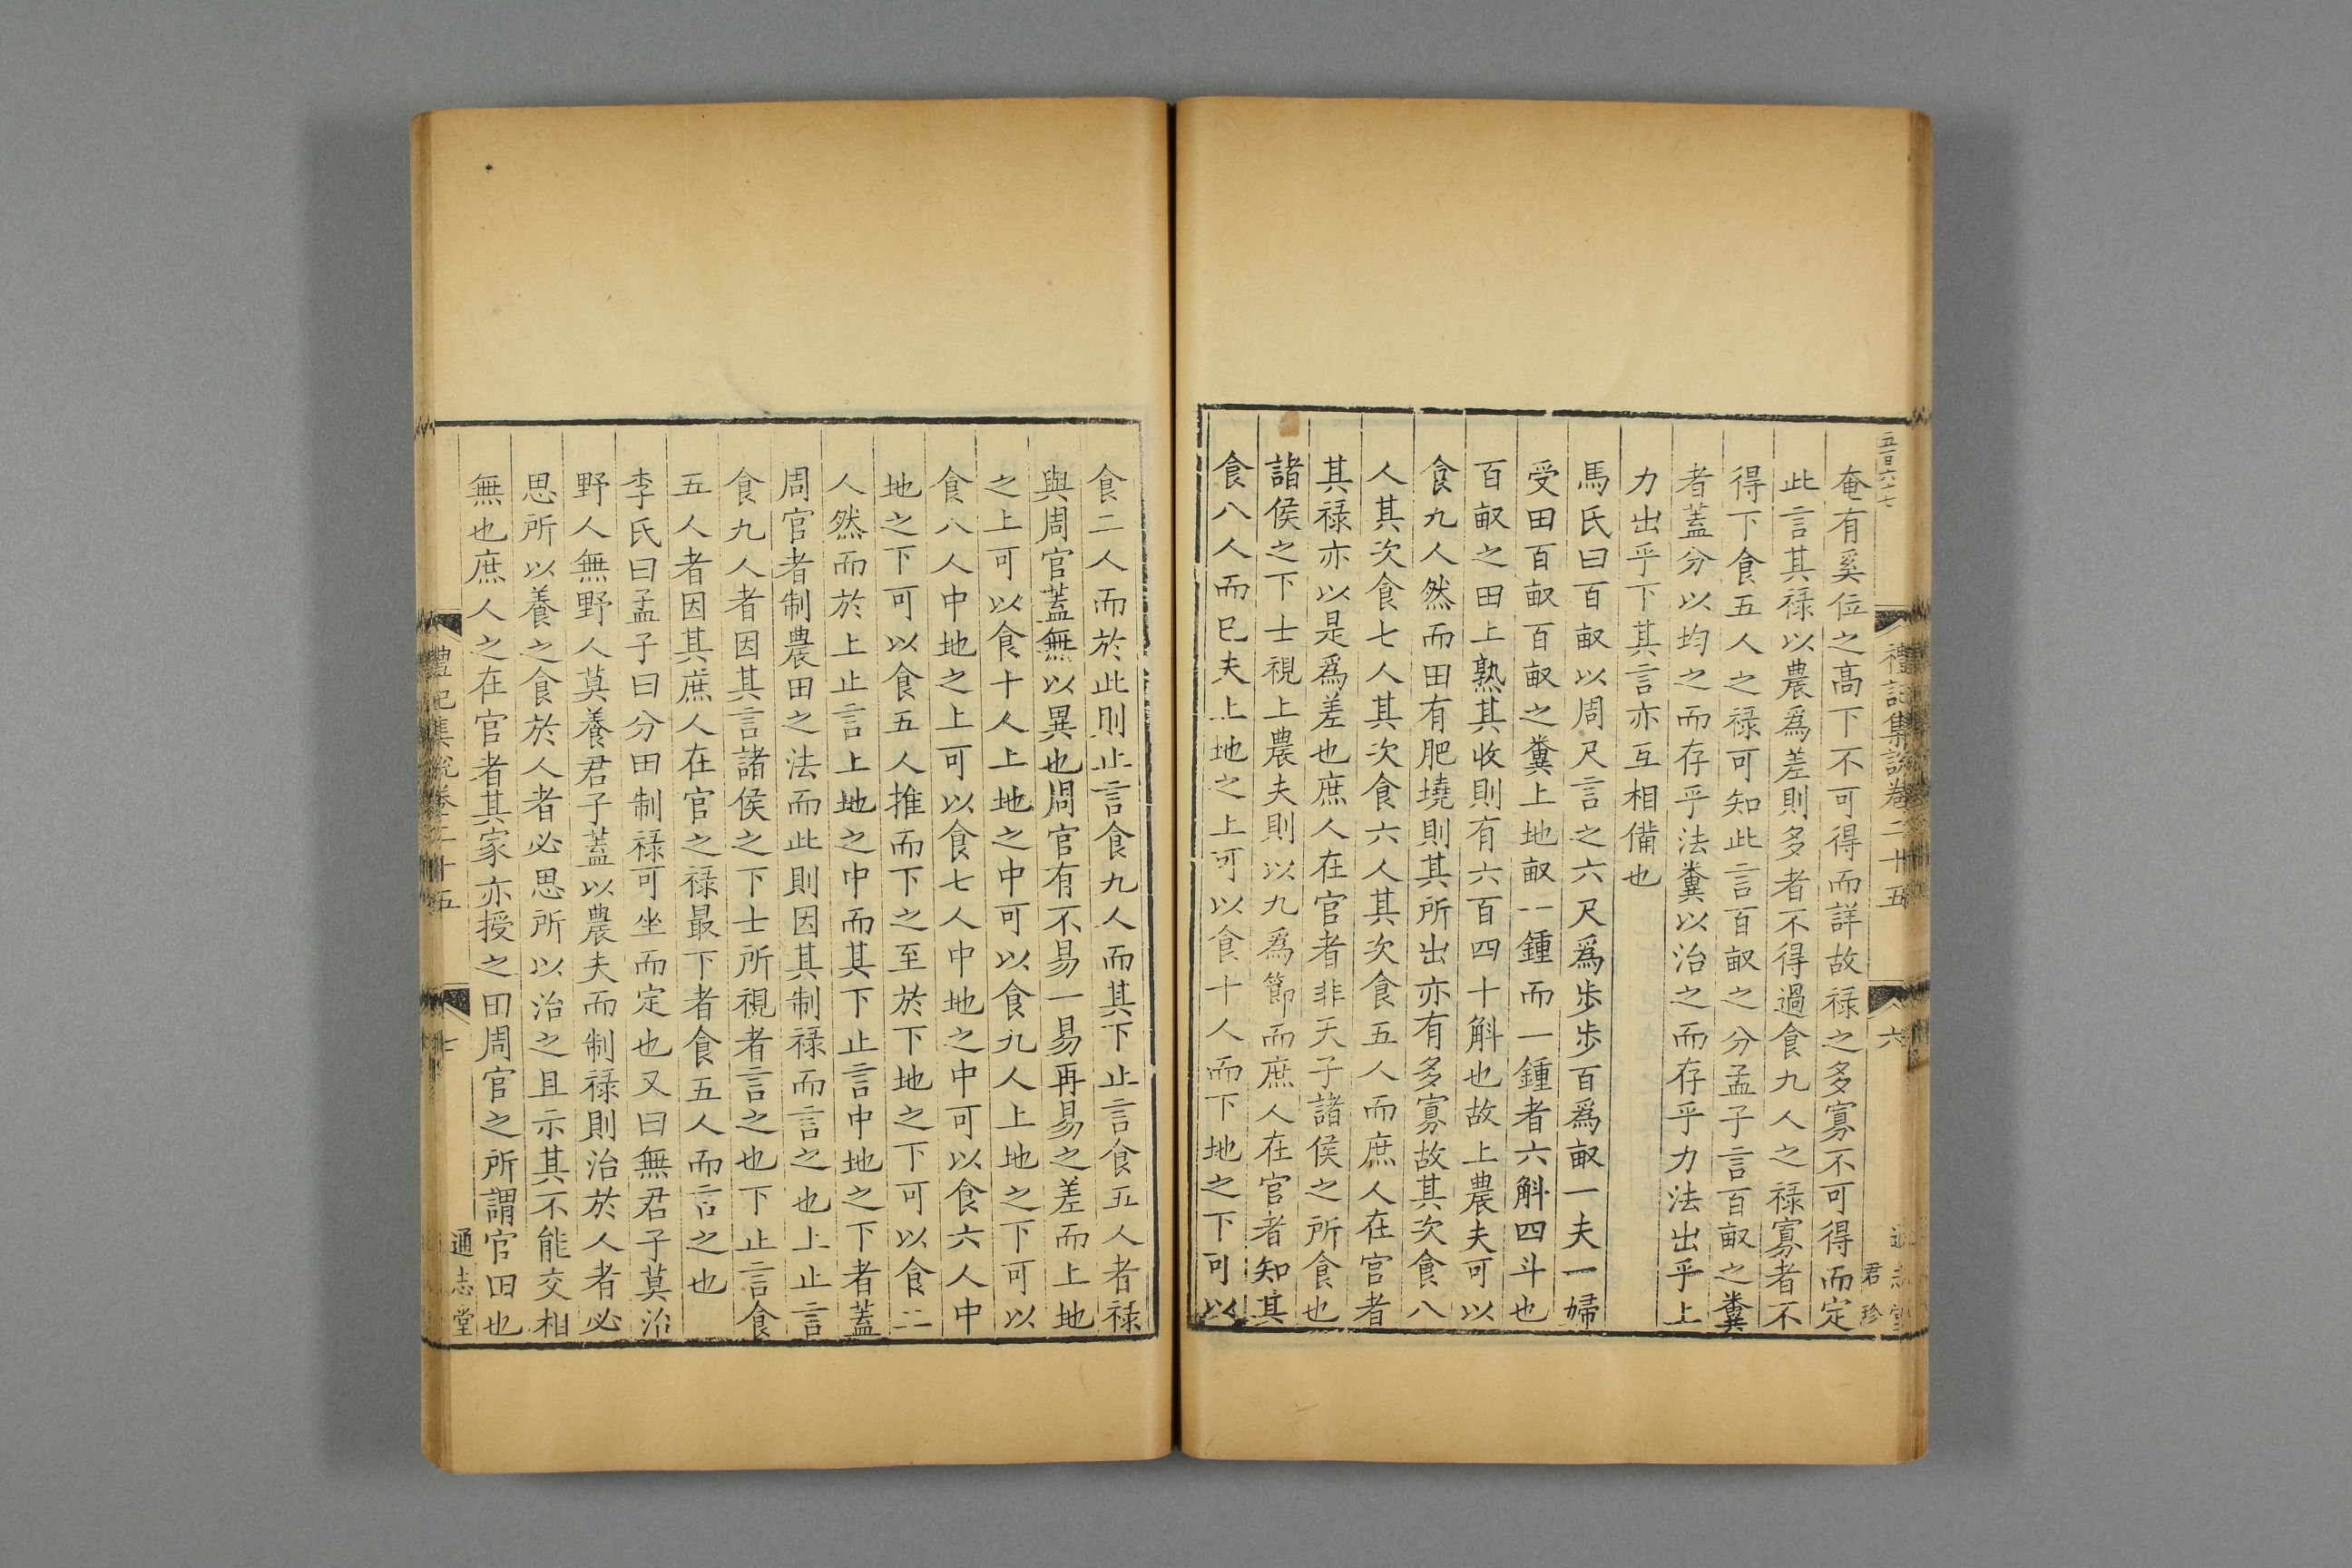 五百六十七
禮記集說卷二十五
六
通志堂
君珍
奄有奚位之髙下不可得而詳故禄之多寡不可得而定
此言其禄以農爲差則多者不得過食九人之禄寡者不
得下食五人之禄可知此言百畝之分孟子言百畝之糞
者蓋分以均之而存乎法糞以治之而存乎力法出乎上
力出乎下其言亦互相備也
馬氏曰百畝以周尺言之六尺爲步步百爲畝一夫一婦
受田百畝百畝之糞上地畝一鍾而一鍾者六斛四斗也
百畝之田上熟其收則有六百四十斛也故上農夫可以
食九人然而田有肥墝則其所出亦有多寡故其次食八
人其次食七人其次食六人其次食五人而庶人在官者
其禄亦以是爲差也庶人在官者非天子諸侯之所食也
諸侯之下士視上農夫則以九爲節而庶人在官者知其
食八人而巳夫上地之上可以食十人而下地之下可以
食二人而於此則止言食九人而其下止言食五人者禄
與周官蓋無以異也周官有不易一易再易之差而上地
之上可以食十人上地之中可以食九人上地之下可以
食八人中地之上可以食七人中地之中可以食六人中
地之下可以食五人推而下之至於下地之下可以食二
人然而於上止言上地之中而其下止言中地之下者蓋
周官者制農田之法而此則因其制禄而言之也上止言
食九人者因其言諸侯之下士所視者言之也下止言食
五人者因其庶人在官之禄最下者食五人而言之也
李氏曰孟子曰分田制禄可坐而定也又曰無君子莫治
野人無野人莫養君子蓋以農夫而制禄則治於人者必
思所以養之食於人者必思所以治之且示其不能交相
無也庶人之在官者其家亦授之田周官之所謂官田也
禮記集說卷二十五
七
通志堂